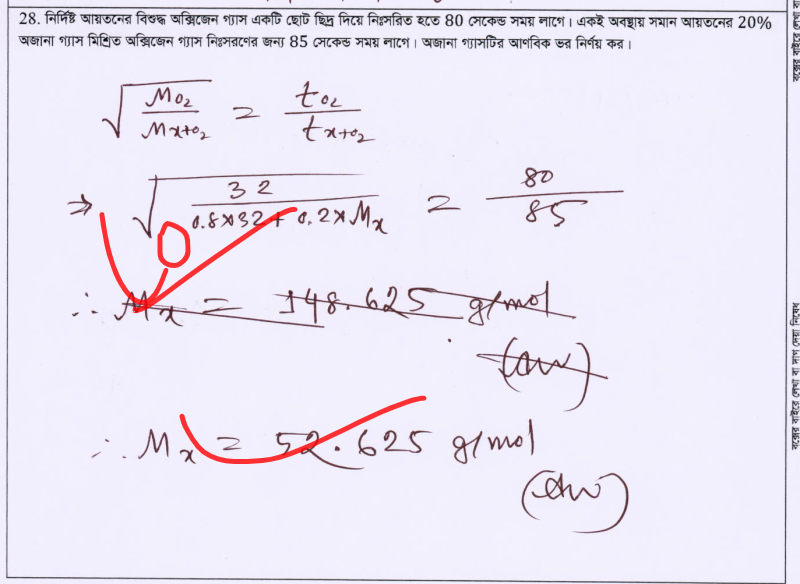 28. নির্দিষ্ট আয়তনের বিশুদ্ধ অক্সিজেন গ্যাস একটি ছোট ছিদ্র দিয়ে নিঃসরিত হতে 80 সেকেন্ড সময় লাগে। একই অবস্থায় সমান আয়তনের 20%
অজানা গ্যাস মিশ্রিত অক্সিজেন গ্যাস নিঃসরণের জন্য 85 সেকেন্ড সময় লাগে। অজানা গ্যাসটির আণবিক ভর নির্ণয় কর।
√(M_O₂ / M_x+O₂) = t_O₂ / t_x+O₂
⇒ √(32 / (0.8×32 + 0.2×M_x)) = 80 / 85
∴ M_x = 148.625 g/mol
(Aw)
∴ M_x = 52.625 g/mol
(Aw)
বক্সের বাইরে লেখা বা দাগ দেয়া নিষেধ